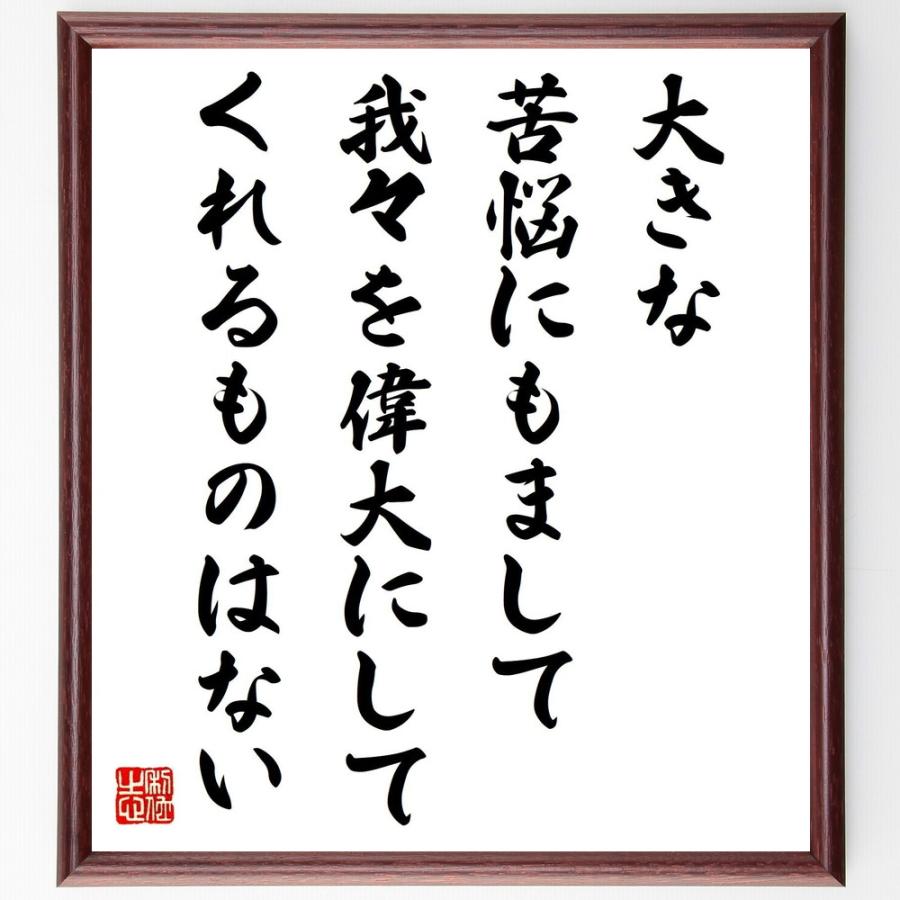 大きな
苦悩にもまして
我々を偉大にして
くれるものはない